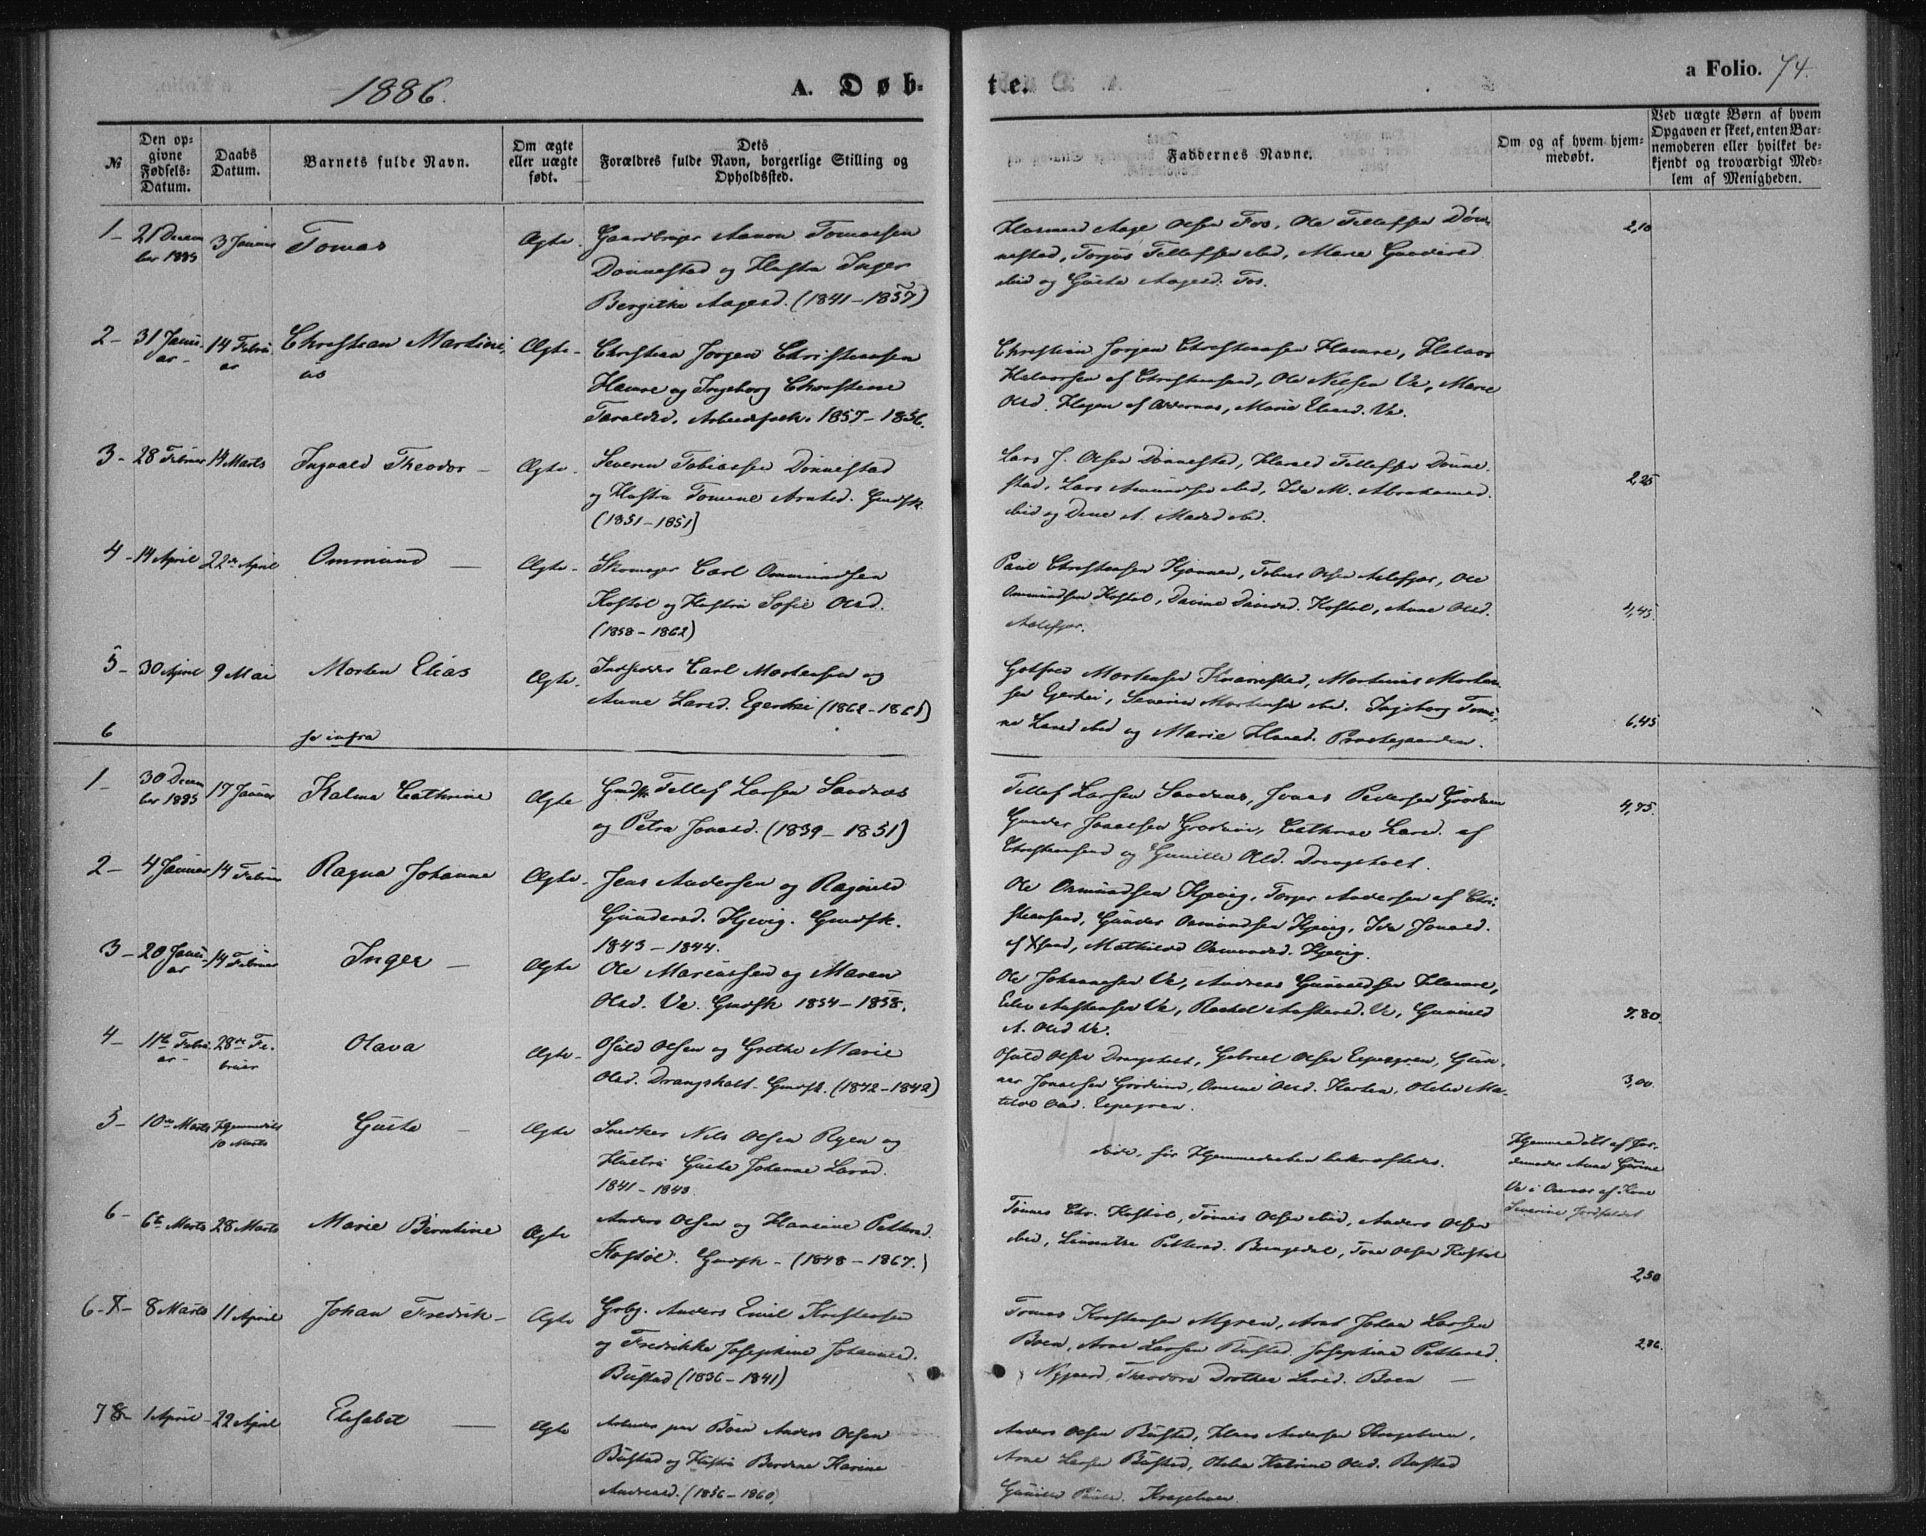 1886.
A. Døb-
te.
a Folio. 74.
№
Den op-
givne
Fødsels-
Datum.
Daabs
Datum.
Barnets fulde Navn.
Om ægte
eller uægte
født.
Dets
Forældres fulde Navn, borgerlige Stilling og
Opholdssted.
Faddernes Navne.
Om og af hvem hjem-
medøbt.
Ved uægte Børn af hvem
Opgaven er skeet, enten Bar-
nemoderen eller hvilket be-
kjendt og troværdigt Med-
lem af Menigheden.
1 - 21 Decem
ber 1885
3 Januar
Tomas
Ægte.
Gaardbruger Aanon Tomassen
Dønnestad og Hustru Inger
Bergitha Aagesd. (1841-1857)
Aage Olsen Fos, Ole Tellefsen Døn-
nestad, Torjus Tellefsen ibid, Marie Gundersd
ibid og Guste Aagesd. Fos.
2,10
2 - 31 Janu-
ar -
14 Febru
ar
Christian Martini
us
Ægte -
Christian Jørgen Christensen
Hamre og Ingeborg Christine
Taraldsd. Arbeidsfolk. 1857-1856.
Christian Jørgen Christensen Hamre,
af Christiansand, Ole Nilsen Ve, Marie
Olsd. Hagen af Oddernes, Marie Elisesd. Ve.
3 - 28 Februar
14 Marts
Ingvald Theodor -
Ægte.
Severin Tobiassen Dønnestad
og Hustru Tomine Arntsd. Gmdsfk.
(1851-1851)
Lars J. Olsen Dønnestad, Harald Tellefsen Dønne-
stad, Lars Amundsen ibid, Ida M. Abrahamsd.
ibid og A. Madsd ibid.
2,25
4 - 14 April
22de April
Ommund -
Ægte.
Skomager Carl Ommundsen
Kostøl og Hustru Sofie Olsd.
(1858-1862)
Paul Christensen Tobias Olsen Aalefjær, Ole
Ommundsen Kostøl, Kostøl, Anne Olsd.
Aalefjær.
4,45
5 - 30 April
9 Mai
Morten Elias
Ægte.
Indsidder Carl Mortensen og
Anne Larsd. Egerhei (1862-1861)
Gotfred Mortensen Martinius Morten-
sen Egerhei, Severin Mortensen ibid. Ingeborg Tomi-
ne Larsd ibid og Marie Præstegaarden.
6,45
6
se infra
1 - 30 Decem
ber 1885
17 Januar
Kalma Cathrine
Ægte
Gmdfk Tellef Larsen Sandnes
og Petra Jonasd. (1839-1851)
Tellef Larsen Sandnes, Jonas Pedersen Grødum
Gunder Jonassen Grødum, Cathrine Larsd. af
Christiansand og Gunille Olsd. Drangsholt.
4,75.
2 - 4 Januar
14 Februar
Ragna Johanne
Ægte.
Jens Andersen og Ragnild
Gundersd. Kjevig. Gmdsfk.
1843-1844.
Ole Osmundsen Kjevig, Torger Andersen af Chri-
stiansand, Gunder Osmundsen Kjevig, Ida Jonasd.
af Xsand, Mathilde Osmundsd. Kjevig.
3 - 20 Janu-
ar
14 Februar
Inger -
Ægte
Ole Mariussen og Maren
Olsd. Ve. Gmdsfk 1854-1858.
Ole Johannesen Ve, Andreas Gunvaldsen Hamre,
Eilev Aastensen Ve, Rachel Aastensd. Ve, Gunnild
A. Olsd Ve.
7,80.
4 - 11te Febru
ar -
28de Fe-
bruar
Olava
Ægte -
Osuld Olsen og Grethe Marie
Olsd. Drangsholt. Gmdsfk. (1842-1842)
Osuld Olsen Drangsholt, Gabriel Olsen Eepegren, Gun-
nar Jonassen Grødum, Omine Olsd. Othelie Ma-
tilde Olsd. Eepegren.
3,00.
5 - 10de Marts
Hjemmedøbt
10 Marts
Guste -
Ægte
Snedker Nils Olsen Ryen og
Hustru Guste Johanne Larsd.
1841-1843.
døde, før Hjemmedaaben bekræftedes.
Hjemmedøbt af Jor-
demoder Anne Gurine
Ve i Overvær af Kone
Severine Jordfaldet
6 -
6te Marts
28 Marts
Marie Berntine
Ægte
Anders Olsen og Hansine Pettersd.
Kostøl. Gmdsfk - (1848-1867.)
Tønnes Chr. Kostøl, Tønnes Olsen ibid, Anders Olsen
ibid, Pettersd. Tone Olsen Kostøl
2,50
6-7- 8 Marts
11 April
Johan Fredrik -
Ægte
Grbg. Anders Emil Kristensen
og Fredrikke Josephine Johannesd.
Bustad (1836-1841)
Tomas Kristensen Myren, Johan Larsen
Boen, Arne Larsen Bustad, Josephine Pettersd.
Nygaard, Theodora Dorthea Larsd. Boen -
2,86.
7 8 - 1 April -
22 April
Elisabet -
Ægte
Arbeider paa Boen Anders Olsen
Bustad og Hustru Berthine Karine
Andreasd. (1856-1860)
Anders Olsen Bustad, Andersen
Arne Larsen Bustad, Othilie Katrine Olsd. Bustad
Gunille